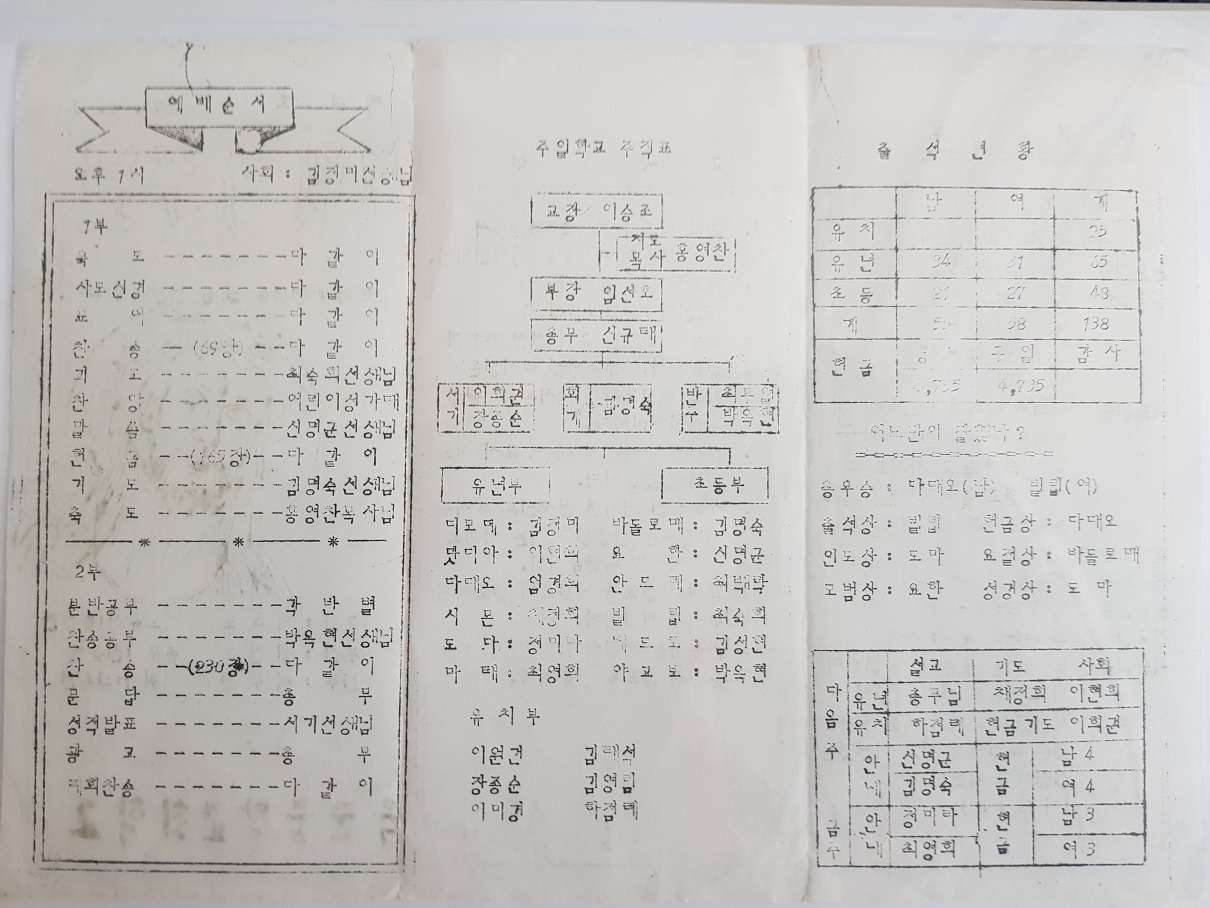 예배순서
오후 1시 사회 : 김정미선생님
1부
묵 도 - - - - - - - 다 같 이
사도신경 - - - - - - - 다 같 이
표 어 - - - - - - - 다 같 이
찬 송 - - (69장) - - 다 같 이
기 도 - - - - - - - 최숙희선생님
찬 양 - - - - - - - 어린이성가대
말 씀 - - - - - - - 신명균선생님
헌 금 - - (165장) - - 다 같 이
기 도 - - - - - - - 김명숙선생님
축 도 - - - - - - - 홍영찬목사님
2부
분반공부 - - - - - - - 각 반 별
찬송공부 - - - - - - - 박옥현선생님
찬 송 - - (230장) - - 다 같 이
문 답 - - - - - - - 총 무
성적발표 - - - - - - - 서기선생님
광 고 - - - - - - - 총 무
폐회찬송 - - - - - - - 다 같 이
주일학교 조직표
교장 이승조
지도목사 홍영찬
부장 임선호
총무 신규태
서기 이희권 장종순
회계 김명숙
반주 박옥현
유년부 초등부
디모데 : 김정미 바돌로매 : 김명숙
맛디아 : 이현희 요 한 : 신명균
다대오 : 임경희 안드레 :
시 몬 : 채정희 빌 립 : 최숙희
도 마 : 정미라 베드로 : 김성현
마 태 : 최영희 야고보 : 박옥현
유치부
이원건 김태석
장종순 김영림
이미경 하점례
출 석 현 황
남 여 계
유 치 25
유 년 34 31 65
초 등 21 27 48
계 55 58 138
헌 금 주일 감 사
4,735
어느반이 잘했나?
총우승 : 다대오(남) 빌립(여)
출석상 : 빌립 헌금상 : 다대오
인도상 : 도마 요절상 : 바돌로매
모범상 : 요한 성경상 : 도 마
설교 기도 사회
다음주 유년 총무님 채정희 이현희
유치 하점례 헌금기도 이희권
안내 신명균 김명숙 헌금 남4 여4
금주 안내 정미라 최영희 헌금 남3 여3